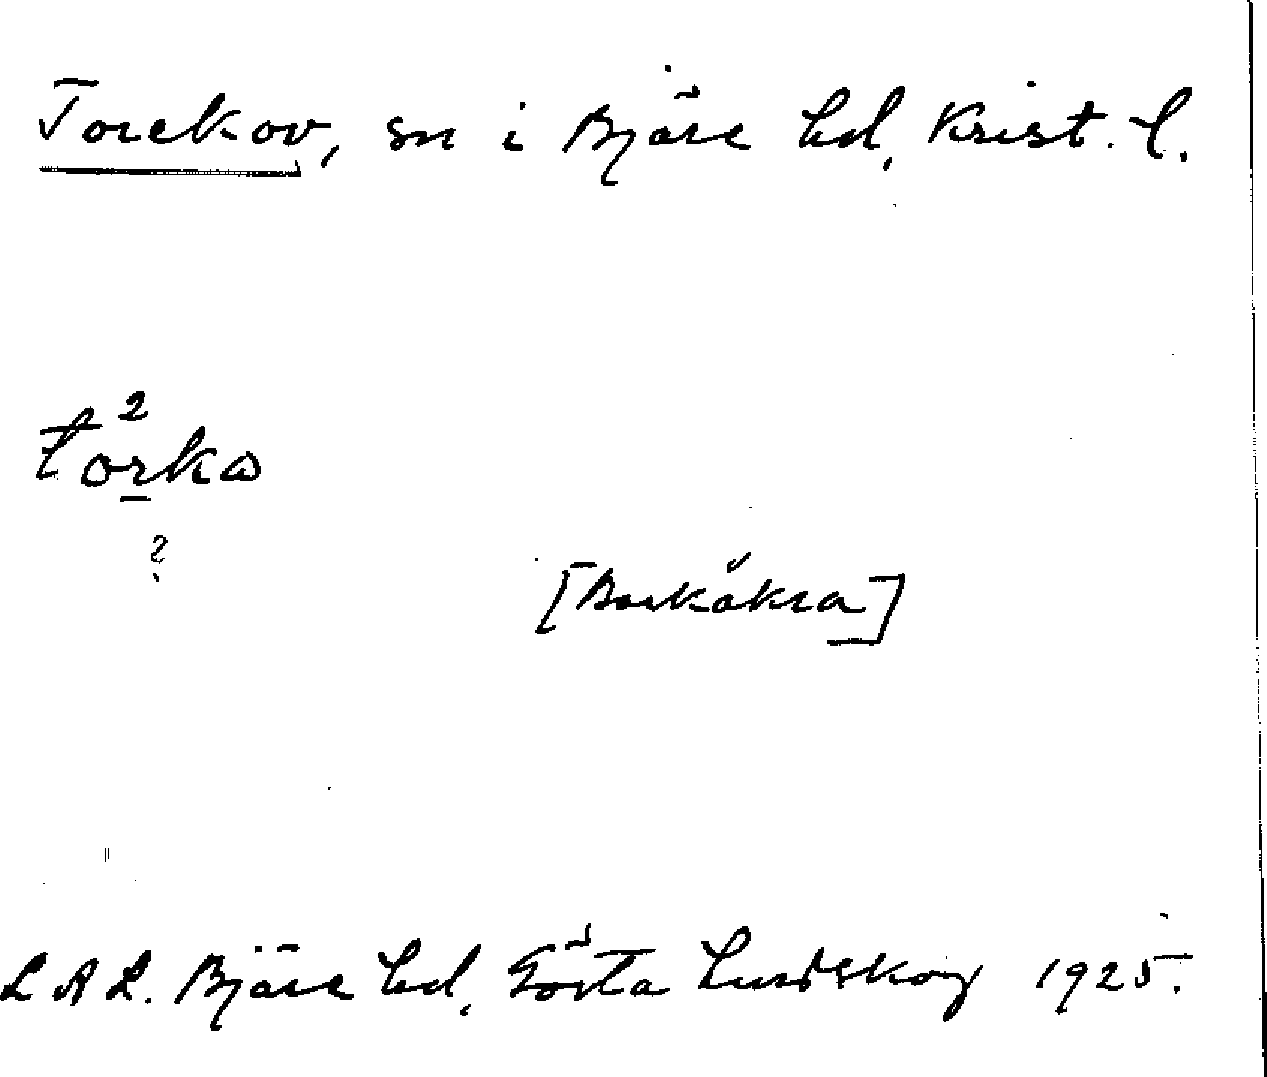 Torekov, sn i Bjäre hd, Krist. l.
to²rka
?
[Barkåkra]
L A L. Bjäre hd, Gösta Lundskog 1925.